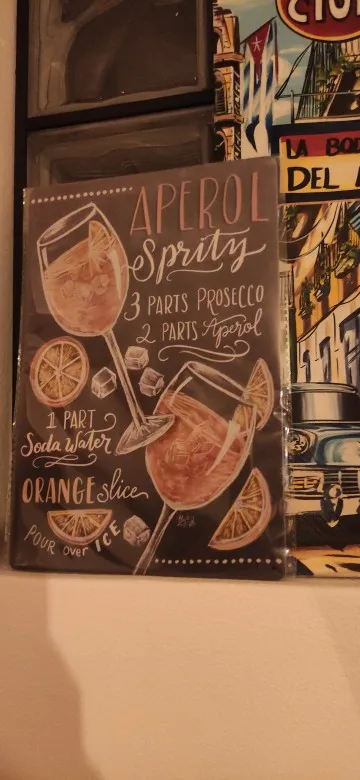 APEROL
Spritz
3 PARTS PROSECCO
2 PARTS Aperol
1 PART
Soda Water
ORANGE slice
POUR over ICE
LA
DEL